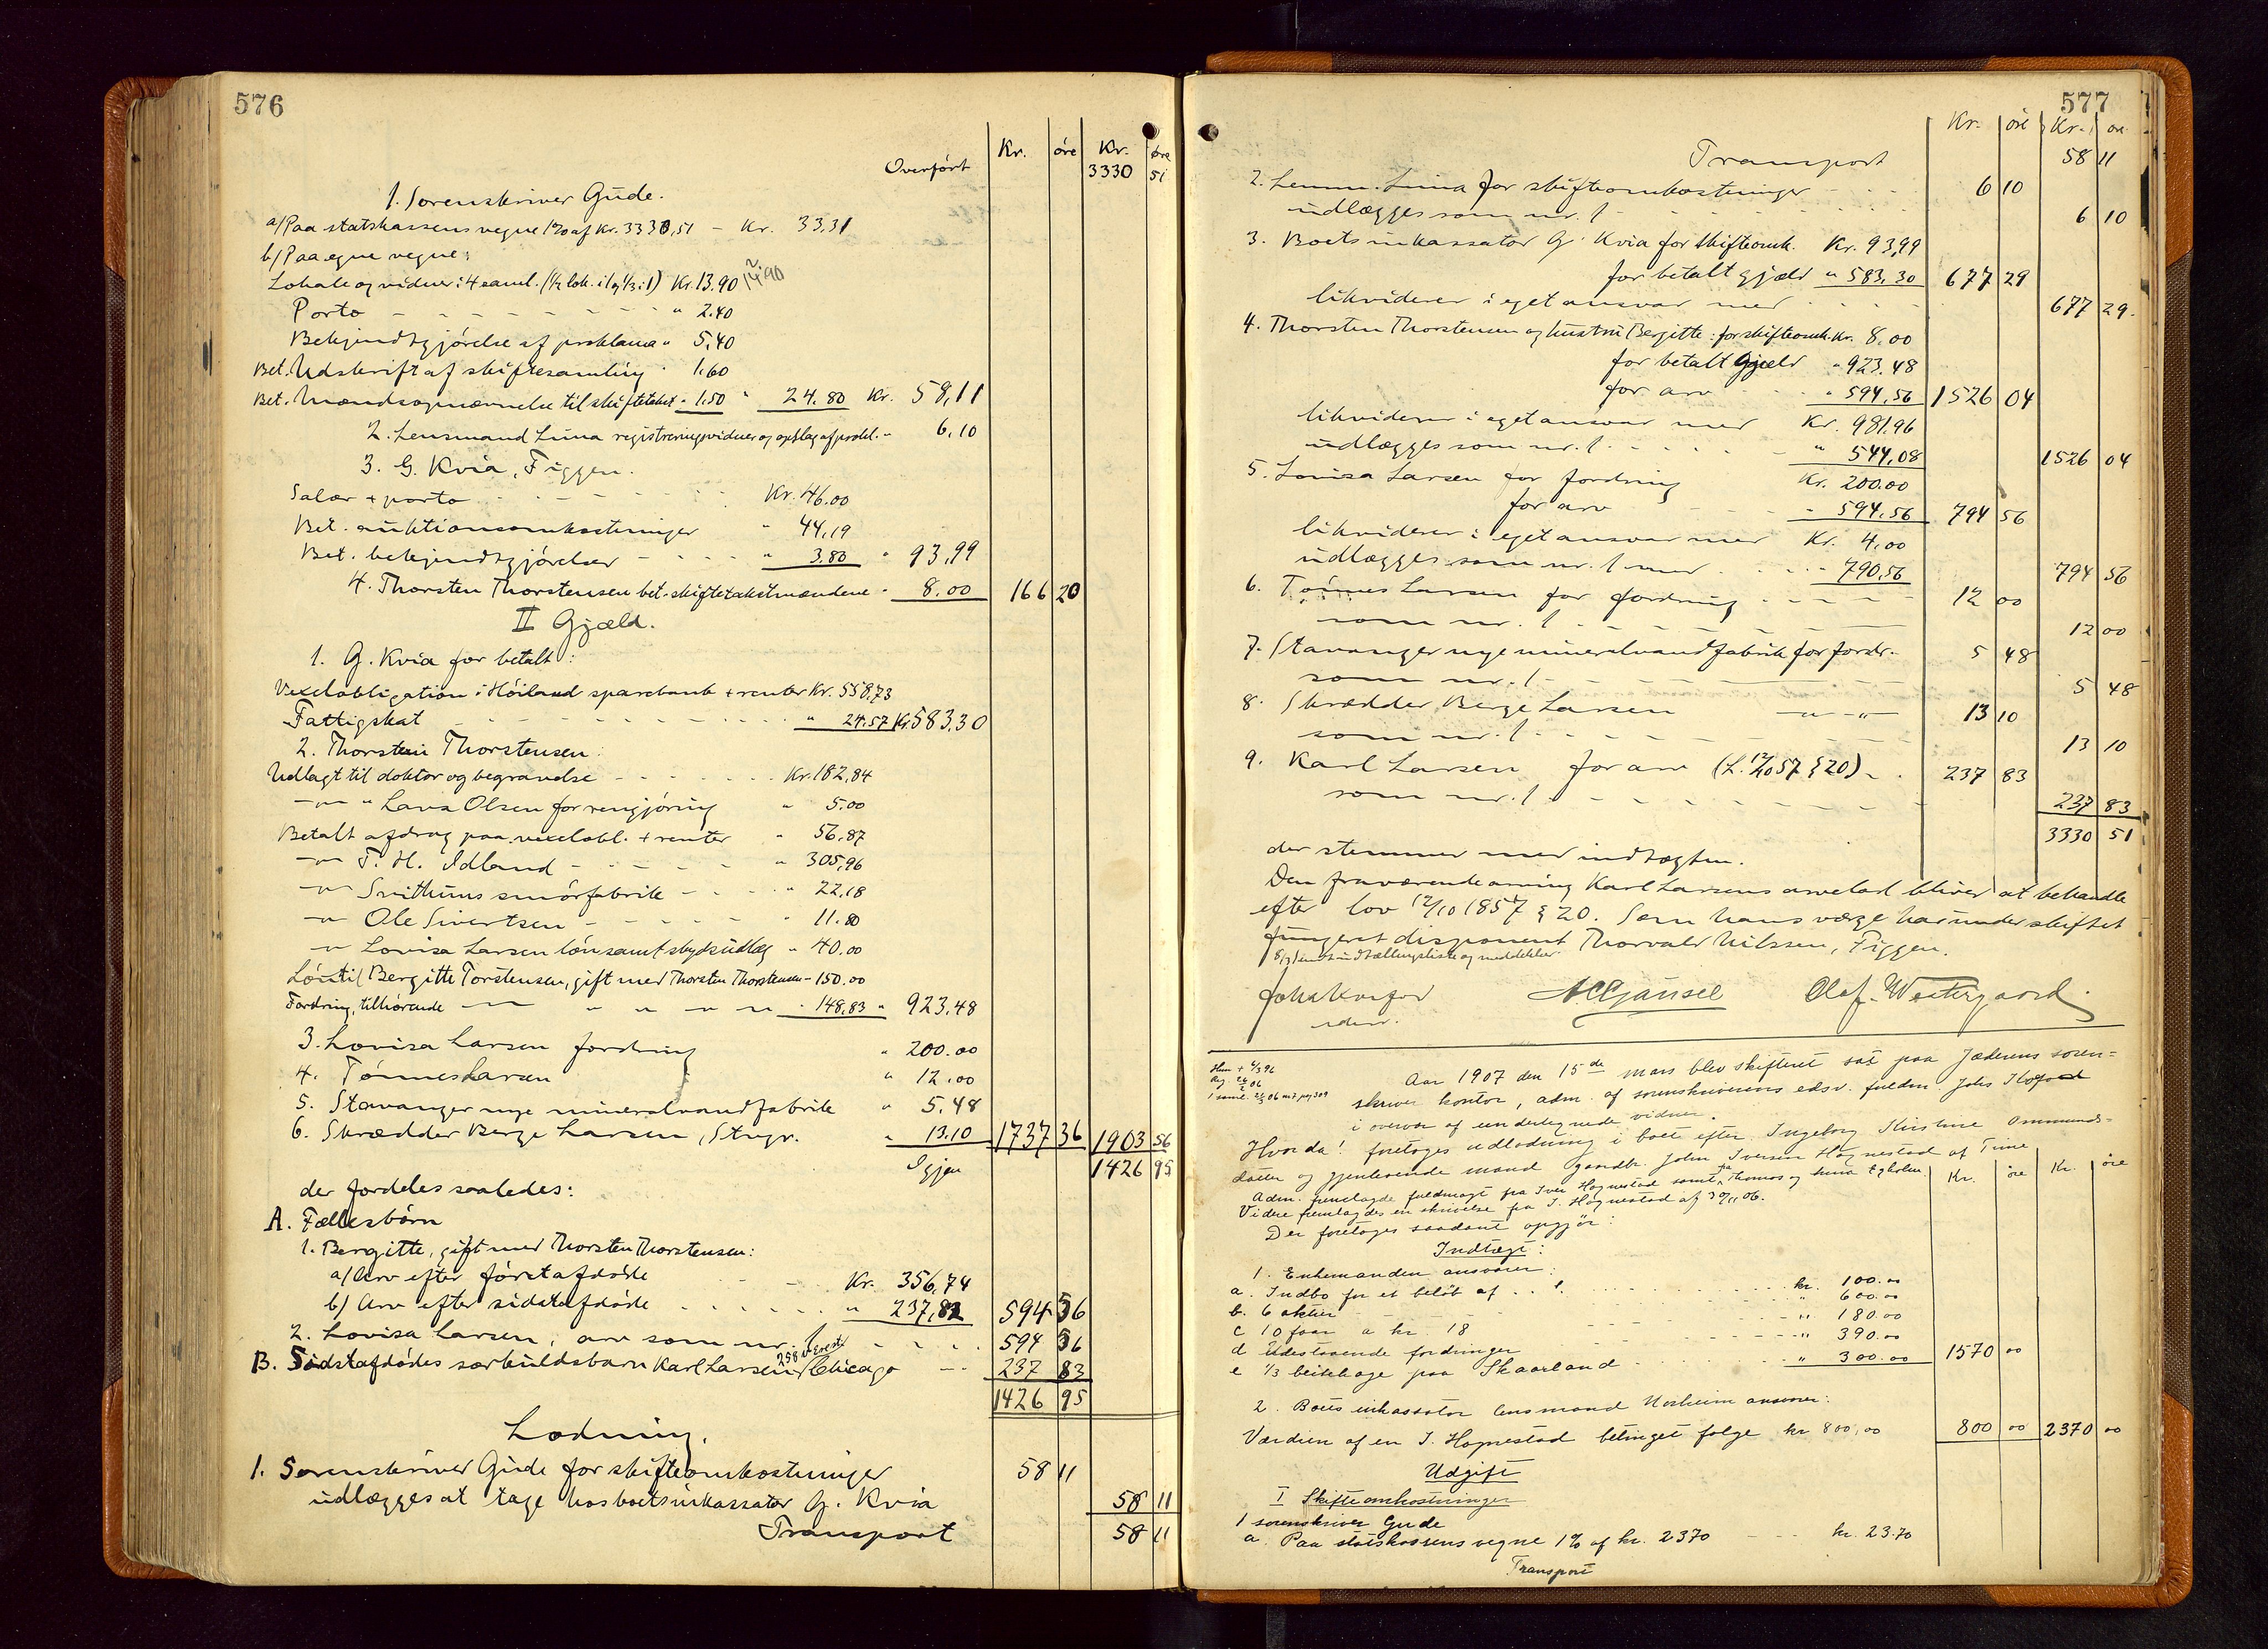 576
Kr. øre Kr. øre
Overført 3330 51
1. Sorenskriver Gude.
a/ Paa statskassens vegne 1% af Kr. 3330,51 - Kr. 33,31
b/ Paa egne vegne:
Lokale og vidner i 4 saml. (1/2 lok. i 1 og 1/3 i 1) Kr. 13.90 14.90
Porto " 2.40
Bekjendtgjørelse af proklama " 5,40
Bet. Udskrift af skiftesamling " 1.60
Bet. Mændsopnævnelse til skiftetakst " 1.50 " 24.80 Kr. 58,11
2. Lensmand Lima registreringsvidner og opslag af prokl. " 6,10
3. G. Kvia, Figgen.
Salær + porto Kr. 46.00
Bet. auktionsomkostninger " 44,19
Bet. bekjendtgjørelser " 3.80 " 93,99
4. Thorsten Thorstensen bet. skiftetakstmændene " 8.00 166 20
II Gjæld.
1. G. Kvia for betalt:
Vexelobligation i Høiland sparebank + renter Kr. 558,73
Fattigskat " 24.57 Kr. 583.30
2. Thorstein Thorstensen:
Udlagt til doktor og begravelse Kr. 182,84
—"— " Lava Olsen for rengjøring " 5.00
Betalt afdrag paa vexelobl. + renter " 56,87
—"— T. H. Idland " 305,96
—"— Svithuns smørfabrik " 22,18
—"— Ole Sivertsen " 11.80
—"— Lovisa Larsen løn samt skydsudlæg " 40.00
Løn til Bergitte Torstensen, gift med Thorsten Thorstensen - 150.00
Fordring, tilhørende —"— " " " " " 148,83 " 923,48
3. Lovisa Larsen fordring " 200.00
4. Tønnes Larsen " 12.00
5. Stavanger nye mineralvandfabrik " 5.48
6. Skrædder Berge Larsen, Stngr. " 13.10 1737 36 1903 56
Igjen 1426 95
der fordeles saaledes:
A. Fællesbørn
1. Bergitte, gift med Thorsten Thorstensen:
a/ Arv efter førstafdøde Kr. 356,74
b/ Arv efter sidstafdøde " 237,82 594 56
2. Lovisa Larsen, arv som nr. 1 594 56
B. Sidstafdødes særkuldsbarn Karl Larsen, Chicago 237 83
1426 95
Lodning.
1. Sorenskriver Gude for skifteomkostninger 58 11
udlægges at tage hos boets inkassator G. Kvia 58 11
Transport 58 11
577
Kr. øre Kr. øre
Transport 58 11
2. Lensm. Lima for skifteomkostninger 6 10
udlægges som nr. 1 6 10
3. Boets inkassator G. Kvia for skifteomk. Kr. 93,99
for betalt gjæld " 583,30 677 29
likviderer i eget ansvar med 677 29.
4. Thorsten Thorstensen og hustru Bergitte: for skifteomk. Kr. 8,00
for betalt gjæld " 923.48
for arv " 594,56 1526 04
likviderer i eget ansvar med Kr. 981,96
udlægges som nr. 1 " 544,08 1526 04
5. Lovisa Larsen for fordring Kr. 200.00
for arv " 594.56 794 56
likviderer i eget ansvar med Kr. 4,00
udlægges som nr. 1 med 790,56 794 56
6. Tønnes Larsen for fordring 12 00
som nr. 1 12 00
7. Stavanger nye mineralvandfabrik for fordr. 5 48
som nr. 1 5 48
8. Skrædder Berge Larsen —"—"— 13 10
som nr. 1 13 10
9. Karl Larsen for arv (L. 12/10 57 § 20) 237 83
som nr. 1 237 83
3330 51
der stemmer med indtægten.
Den fraværende arving Karl Larsens arvelod bliver at behandle
efter lov 12/10 1857 § 20. Som hans værge har under skiftet
fungeret disponent Thorvald Nilssen, Figgen.
Olaf Westergaard.
Aar 1907 den 15de mars blev skifteret sat paa Jæderens soren=
skriver kontor, adm. af sorenskriverens edsv. fuldm. Johs
i overvær af undertegnede vidner.
Hvorda! foretoges udlodning i boet efter Ingeborg Kirstine Ommunds=
datter og gjenlevende mand gaardbr. John Iversen Høgnestad af Time
Adm. fremlagde fuldmagt fra Iver Høgnestad samt fra Thomas og Egholm.
Videre fremlagdes en skrivelse fra J. Høgnestad af 30/11 06.
Der foretoges saadant opgjør:
Kr. øre Kr. øre
Indtægt:
1. Enkemanden ansvarer:
a. Indbo for et beløb af kr. 100.00
b. 6 aktier " 600.00
c 10 faar a kr. 18 " 180.00
d Udestaaende fordringer " 390.00
e 1/3 beitehage paa Skaarland " 300.00 1570 00
2. Boets inkassator lensmand ansvarer:
Værdien af en J. Høgnestad betinget følge kr 800,00 800 00 2370 00
Udgift
I Skifteomkostninger
1 sorenskriver Gude
a. Paa statskassens vegne 1% af kr. 2370 kr. 23.70
Transport